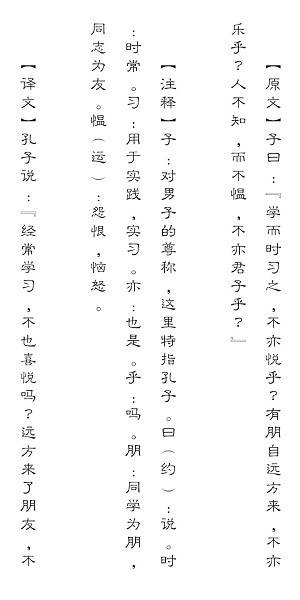 【原文】子曰：『学而时习之，不亦悦乎？有朋自远方来，不亦
乐乎？人不知，而不愠，不亦君子乎？』
【注释】子：对男子的尊称，这里特指孔子。曰（约）：说。时
：时常。习：用于实践，实习。亦：也是。乎：吗。朋：同学为朋，
同志为友。愠（运）：怨恨，恼怒。
【译文】孔子说：『经常学习，不也喜悦吗？远方来了朋友，不